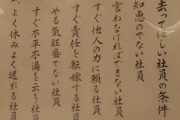 去ってほしい社員の条件
知恵のでない社員
言わなければできない社員
すぐ他人の力に頼る社員
すぐ責任を転嫁する社員
やる気旺盛でない社員
すぐ不平不満を云う社員
よく休みよく遅れる社員